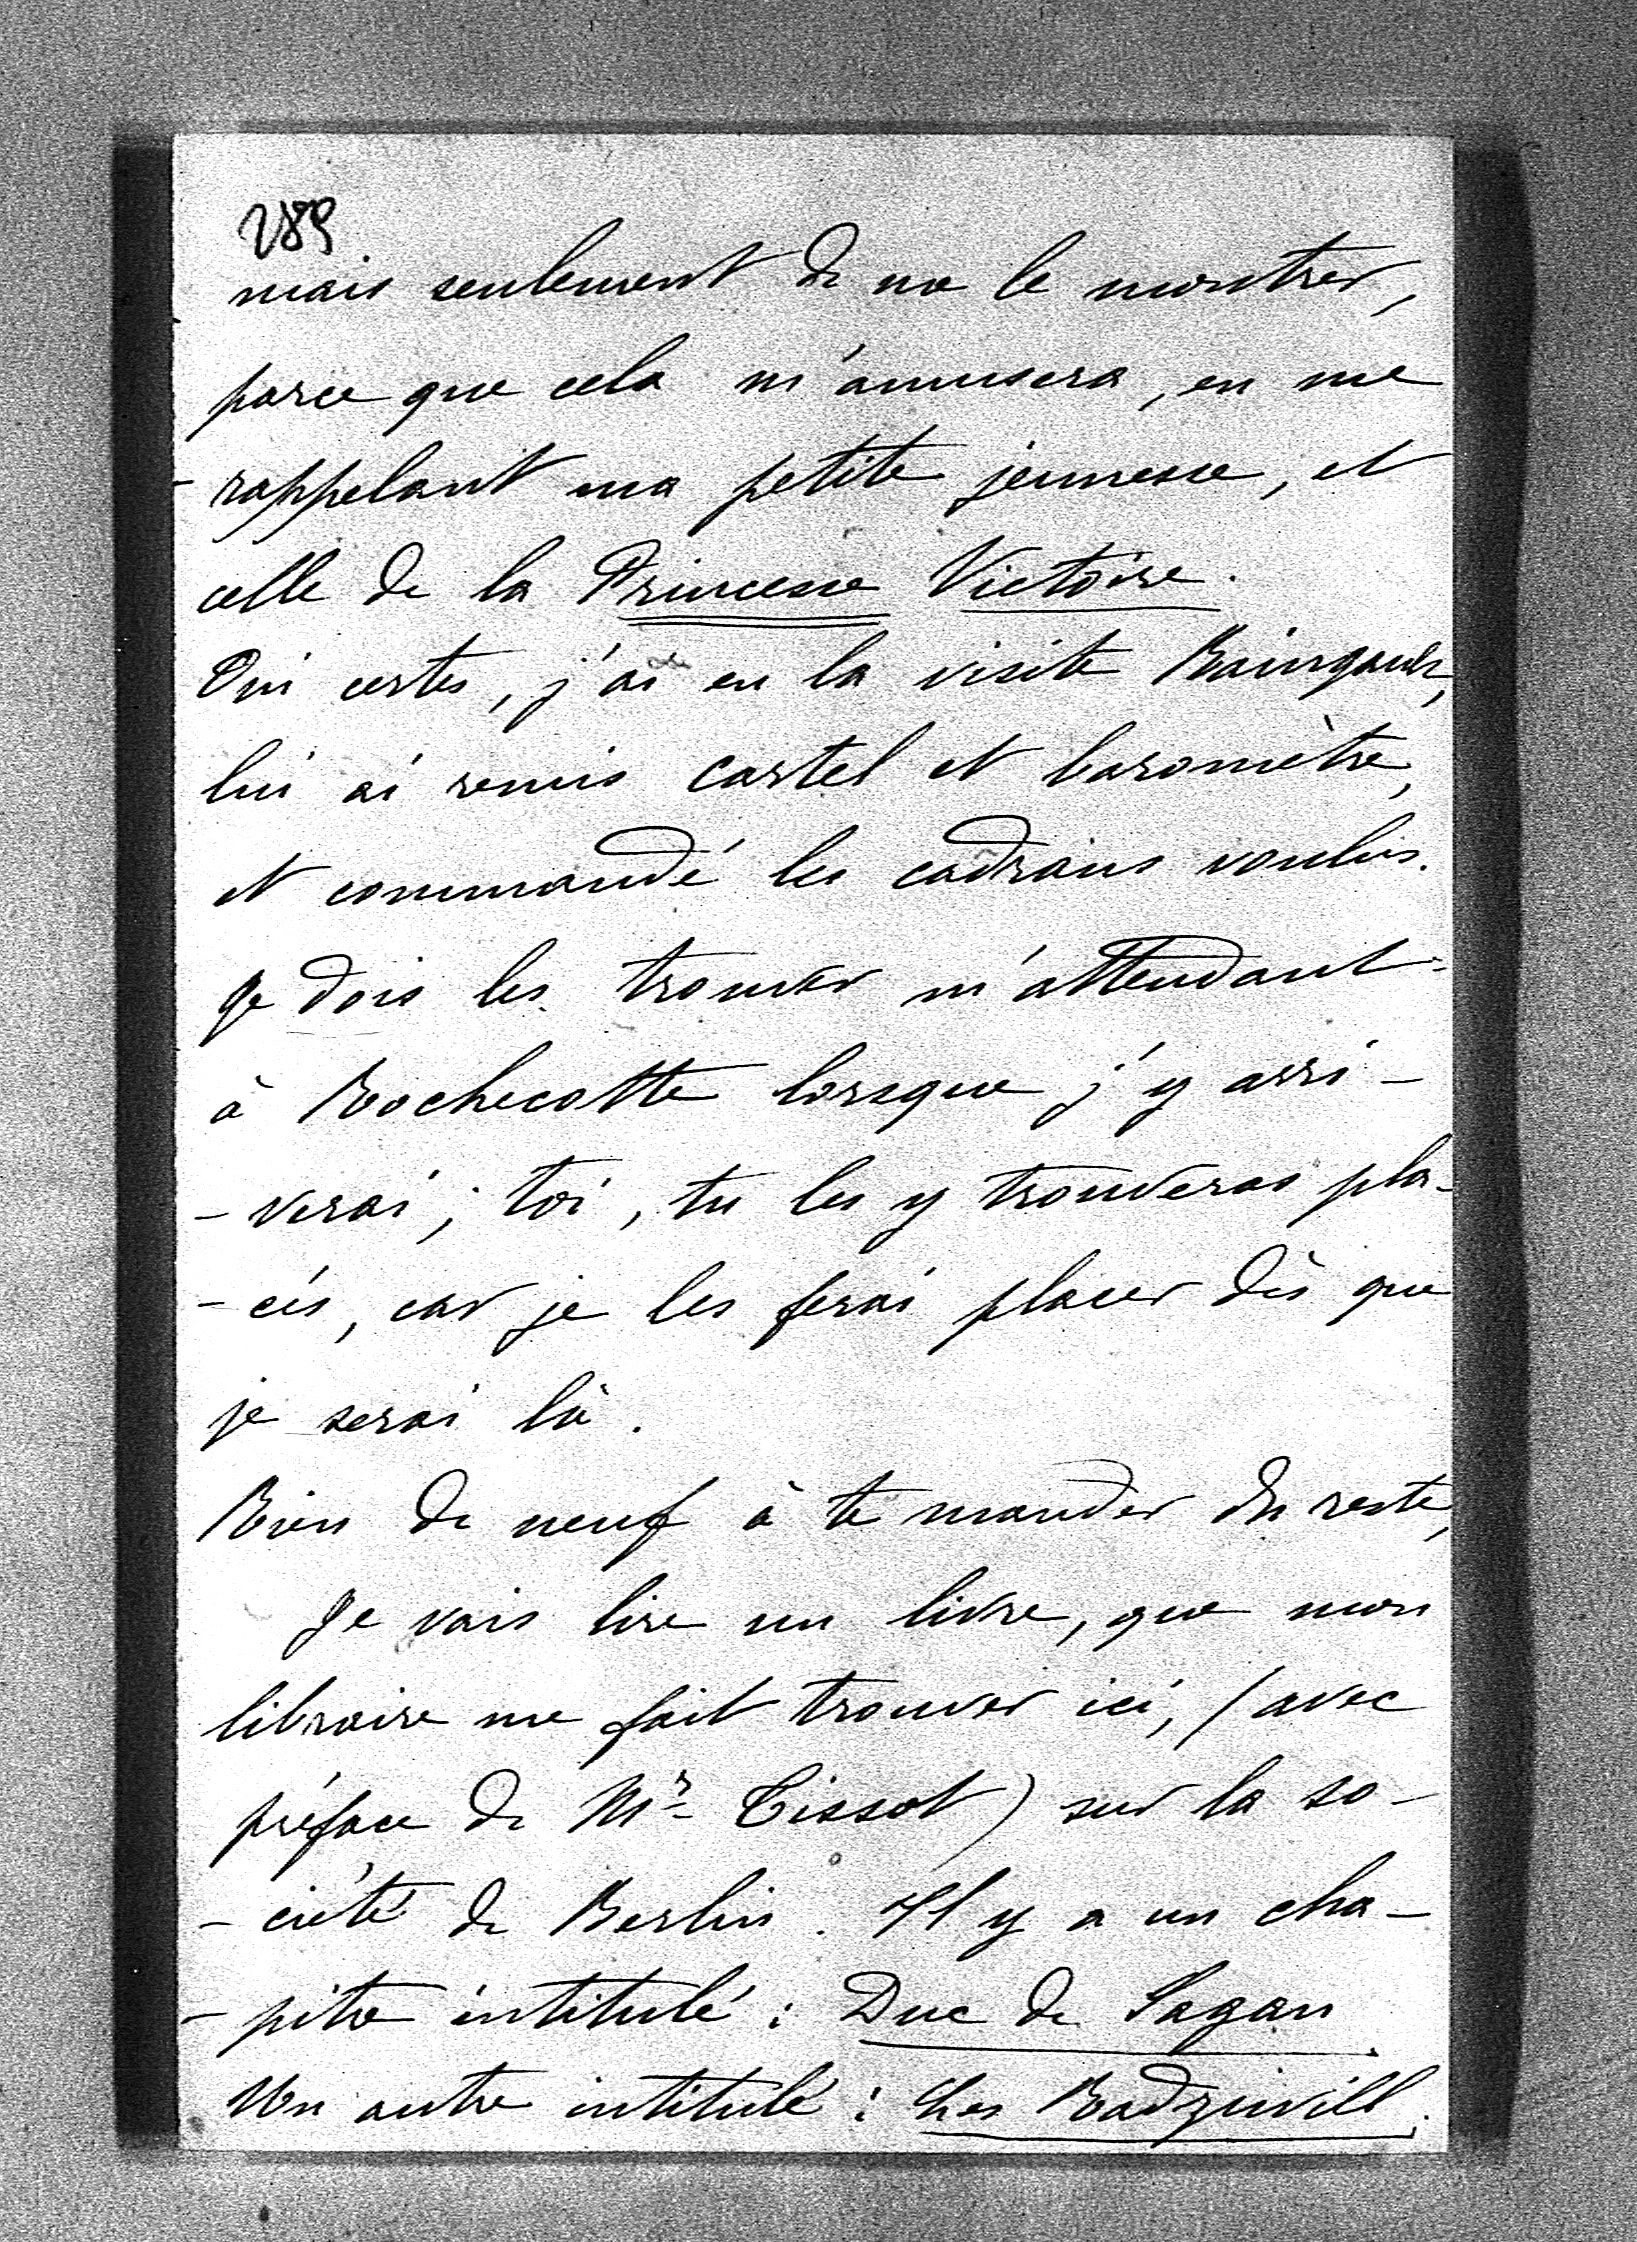 289
mais seulement de me le montrer,
parce que cela m'amusera, en me
rappelant ma petite jeunesse, et
celle de la Princesse Victoire.
Oui certes, j'ai eu la visite
lui ai remis cartel et baromètre,
et commandé les cadrans voulus.
Je dois les trouver m'attendant
à Rochecotte lorsque j'y arri-
-verai ; toi, tu les y trouveras pla-
-cés, car je les ferai placer dès que
je serai là.
Rien de neuf à te mander du reste,
Je vais lire un livre, que mon
libraire me fait trouver ici, (avec
préface de Mr Tissot) sur la so-
-ciété de Berlin. Il y a un cha-
-pitre intitulé : Duc de Sagan
Un autre intitulé : Les Radziwill.